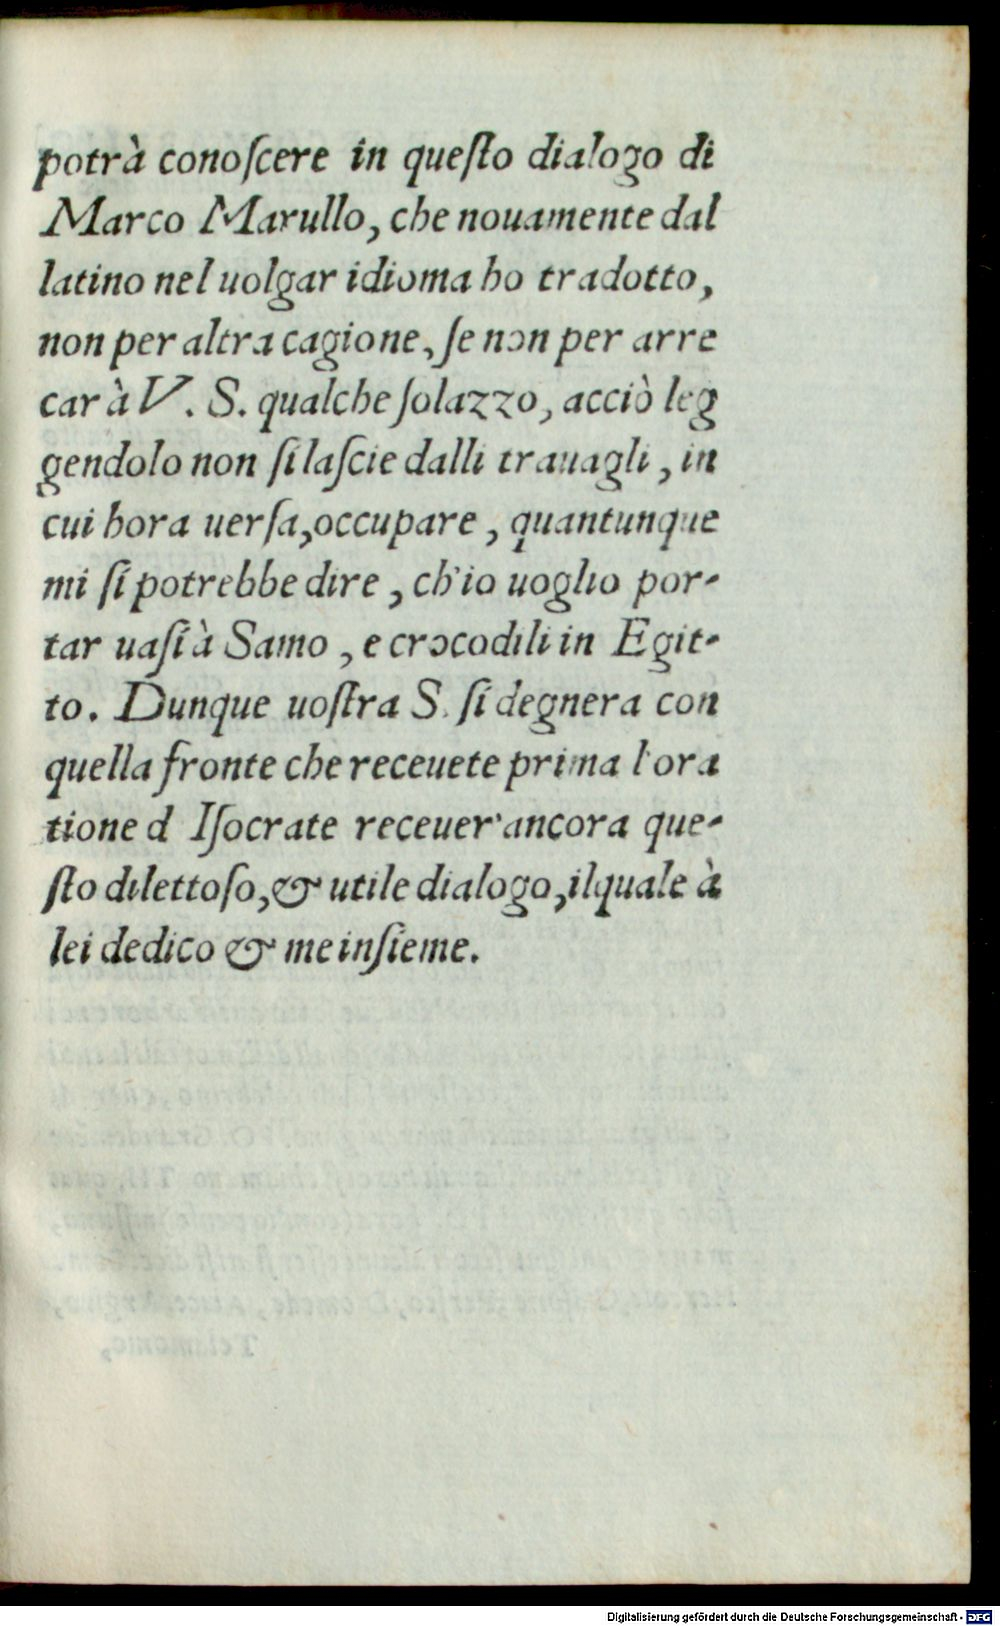 potrà conoſcere in queſto dialogo di
Marco Marullo, che nouamente dal
latino nel uolgar idioma ho tradotto,
non per altra cagione, ſe non per arre
car à V. S. qualche ſolazzo, acciò leg
gendolo non ſi laſcie dalli trauagli, in
cui hora uerſa, occupare, quantunque
mi ſi potrebbe dire, ch'io uoglio por-
tar uaſi à Samo, e crocodili in Egit-
to. Dunque uoſtra S. ſi degnera con
quella fronte che receuete prima l'ora
tione d Iſocrate receuer' ancora que-
ſto dilettoſo, & utile dialogo, ilquale à
lei dedico & me inſieme.
Telamonio,
Digitalisierung gefördert durch die Deutsche Forschungsgemeinschaft - DFG